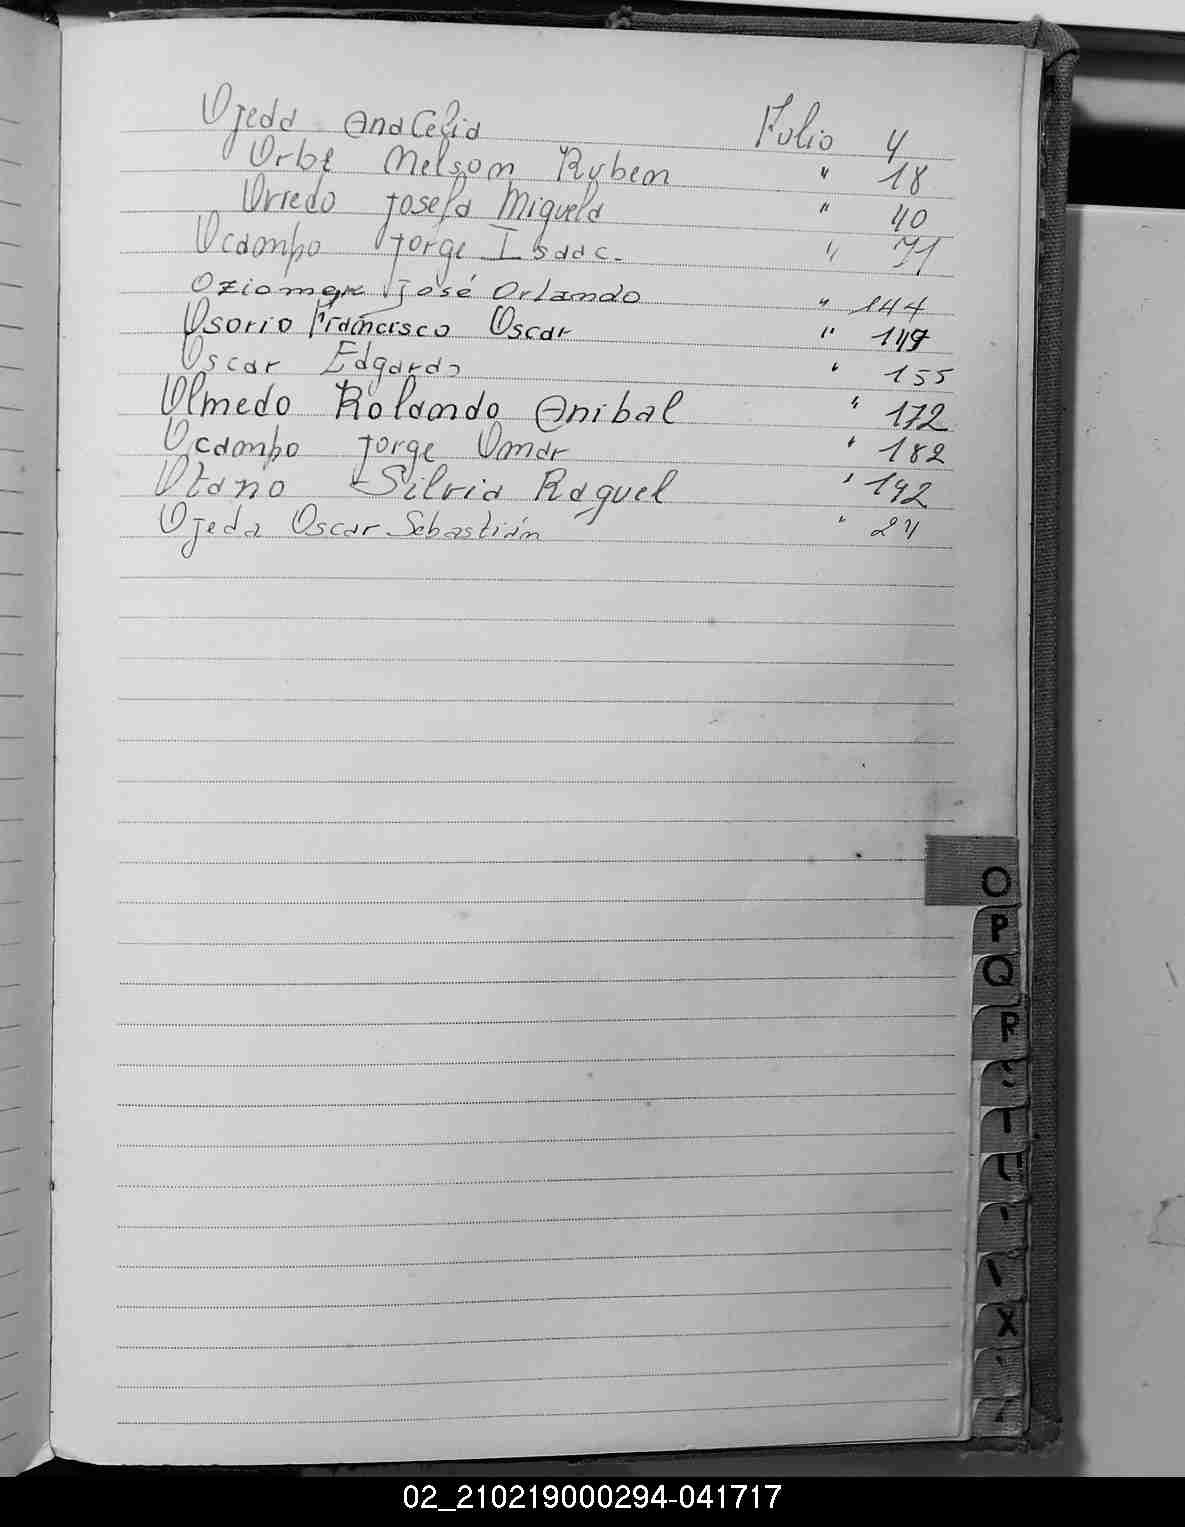 Ojeda Ana Celia Folio 4
Orbe Nelson Ruben " 18
Orredo Josefa Miguela " 40
Ocampo Jorge Isaac. " 71
José Orlando " 144
Osorio Francisco Oscar " 149
Oscar Edgardo " 155
Olmedo Rolando Anibal " 172
Ocampo Jorge Omar " 182
Otano Silvia Raquel " 192
Ojeda Oscar Sebastián "
O
P
Q
R
X
02_210219000294-041717